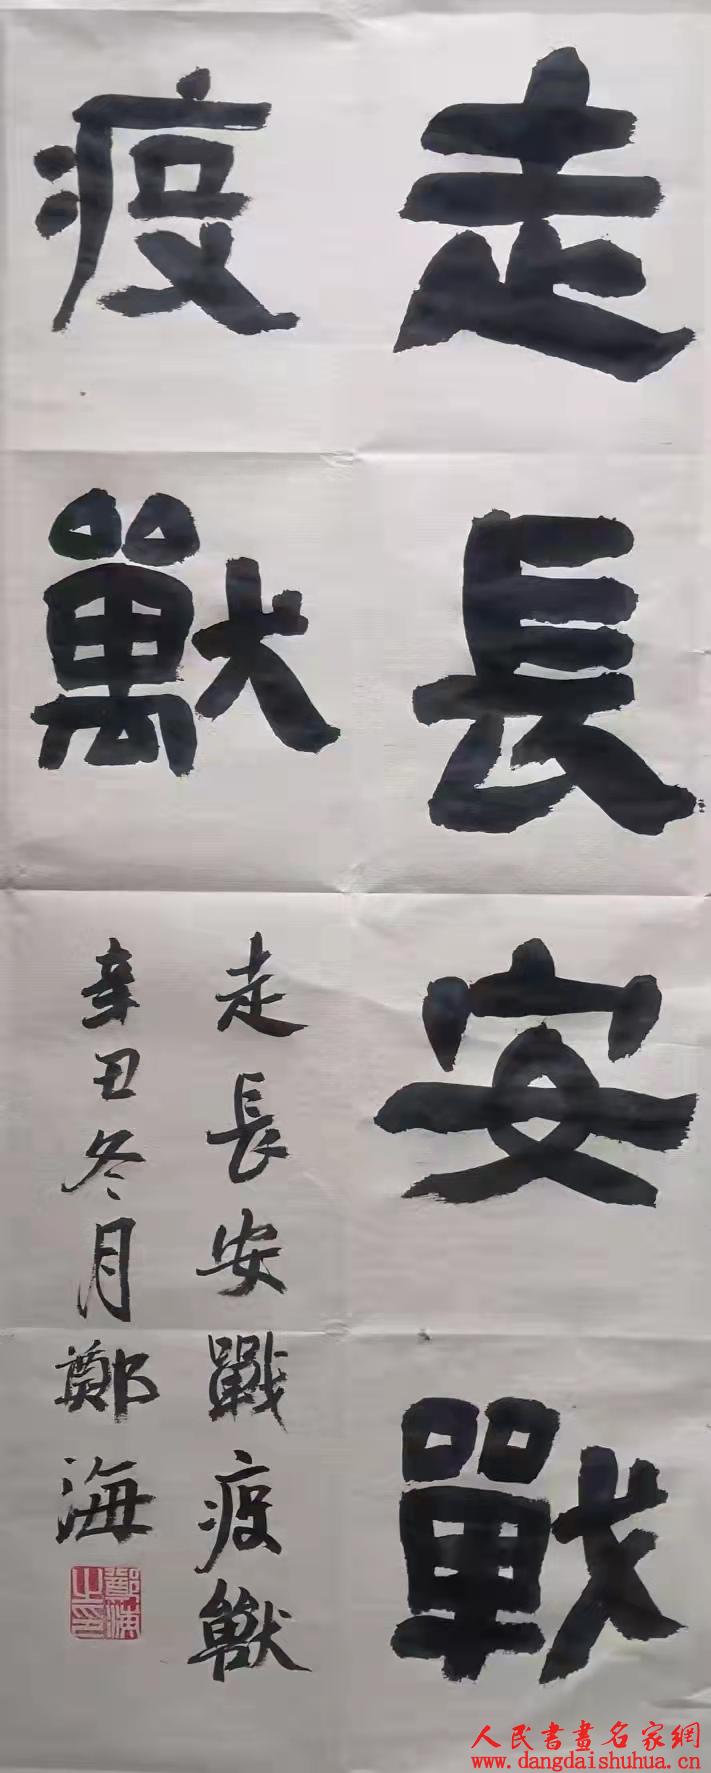 走長安戰
疫獸
走長安戰疫獸
辛丑冬月鄭海
鄭海之印
人民書畫名家網
www.dangdaishuhua.cn